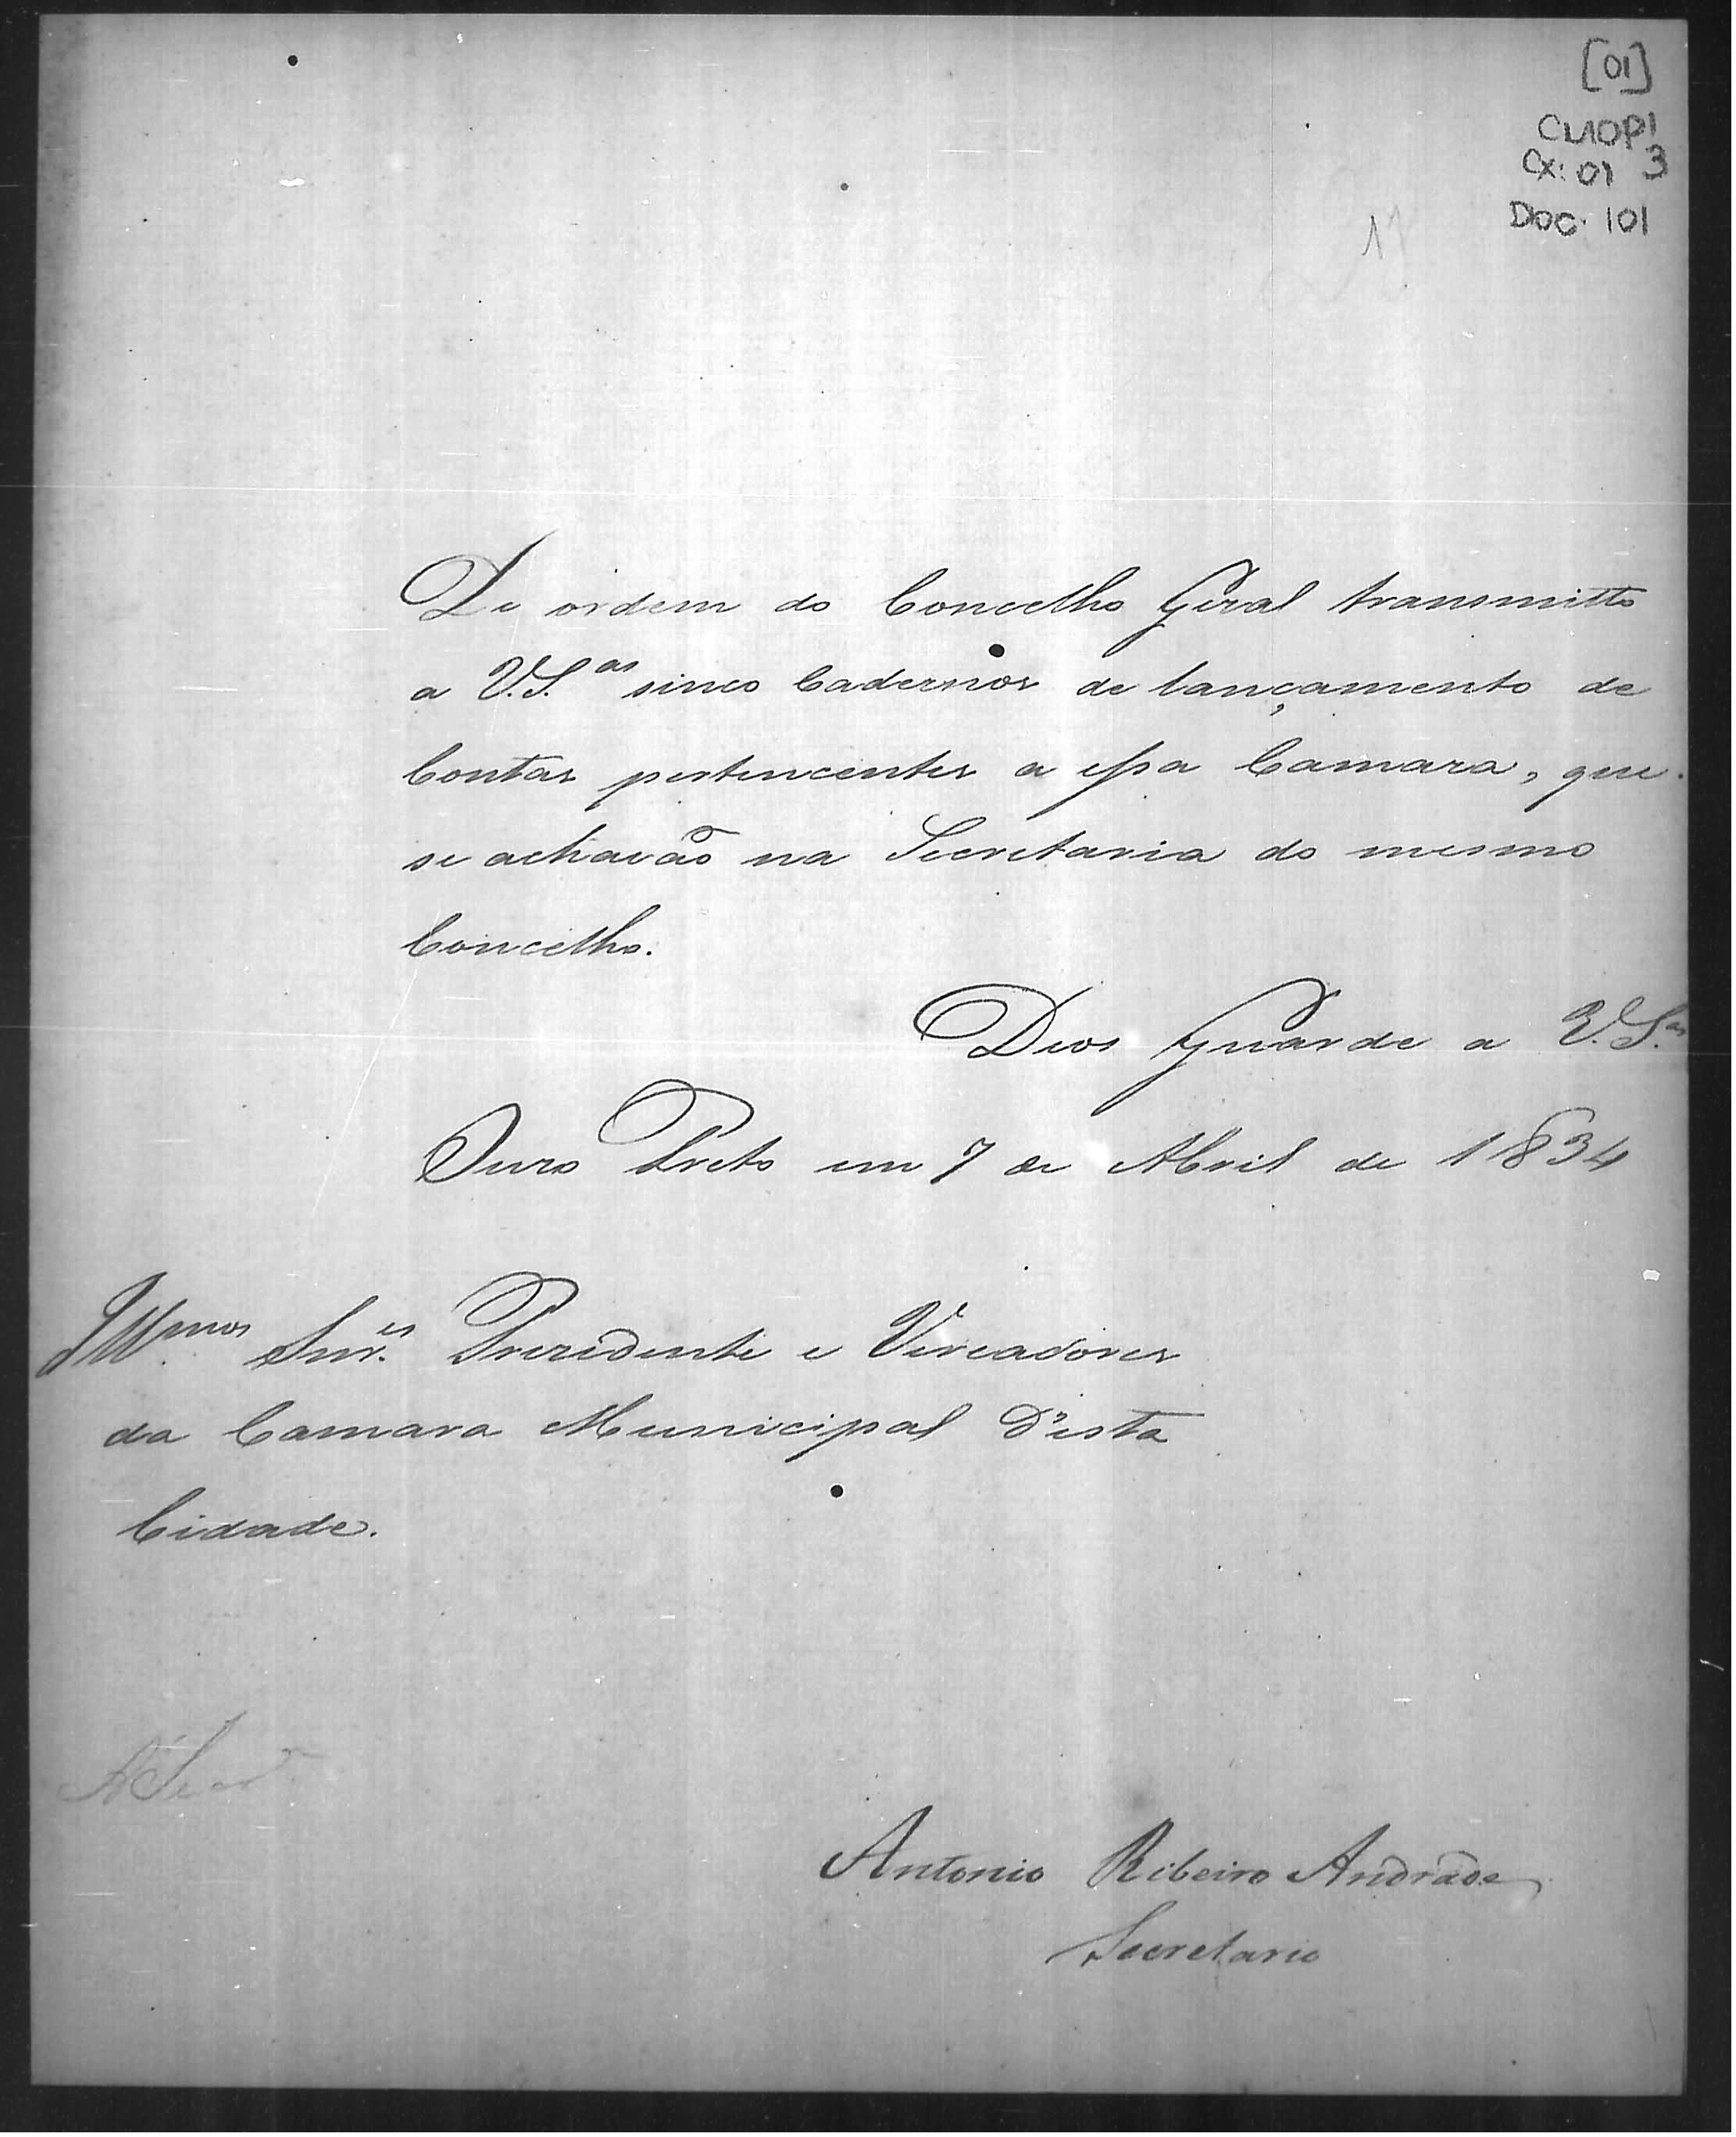 [01]
CMOP1
CX: 01 3
DOC. 101
De ordem do Concelho Geral transmitto
a V.S.as sinco Cadernos de lançamento de
Contas pertencentes a essa Camara, que
se achavão na Secretaria do mesmo
Concelho.
Deos Guarde a V.S.as
Ouro Preto em 7 de Abril de 1834
Illmos Snr.es Prezidente e Vereadores
da Camara Municipal D'esta
Cidade.
Antonio Ribeiro Andrade
Secretario